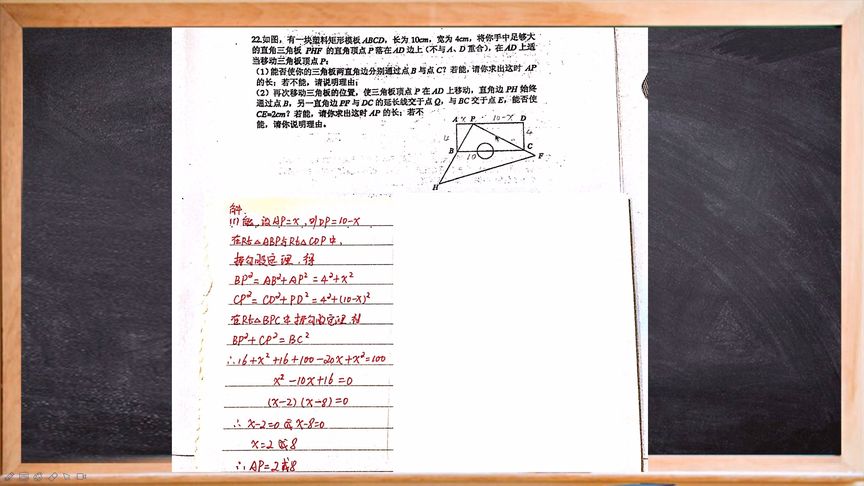 22.如图,有一块塑料矩形模板ABCD,长为10cm,宽为4cm,将你手中足够大
的直角三角板 PHF 的直角顶点P落在AD边上(不与A、D重合),在AD上适
当移动三角板顶点P:
(1)能否使你的三角板两直角边分别通过点B与点C?若能,请你求出这时 AP
的长;若不能,请说明理由;
(2)再次移动三角板的位置,使三角板顶点P在AD上移动,直角边PH始终
通过点B,另一直角边PF与DC的延长线交于点Q,与BC交于点E,能否使
CE=2cm?若能,请你求出这时AP的长;若不
能,请你说明理由。
A x P 10-x D
4 4
B C
10 F
H
解
(1)能,设AP=x,则DP=10-x
在Rt△ABP与Rt△CDP中,
按勾股定理,得
BP²=AB²+AP²=4²+x²
CP²=CD²+PD²=4²+(10-x)²
在Rt△BPC中按勾股定理
BP²+CP²=BC²
∴16+x²+16+100-20x+x²=100
x²-10x+16=0
(x-2)(x-8)=0
∴x-2=0或x-8=0
x=2或8
∴AP=2或8